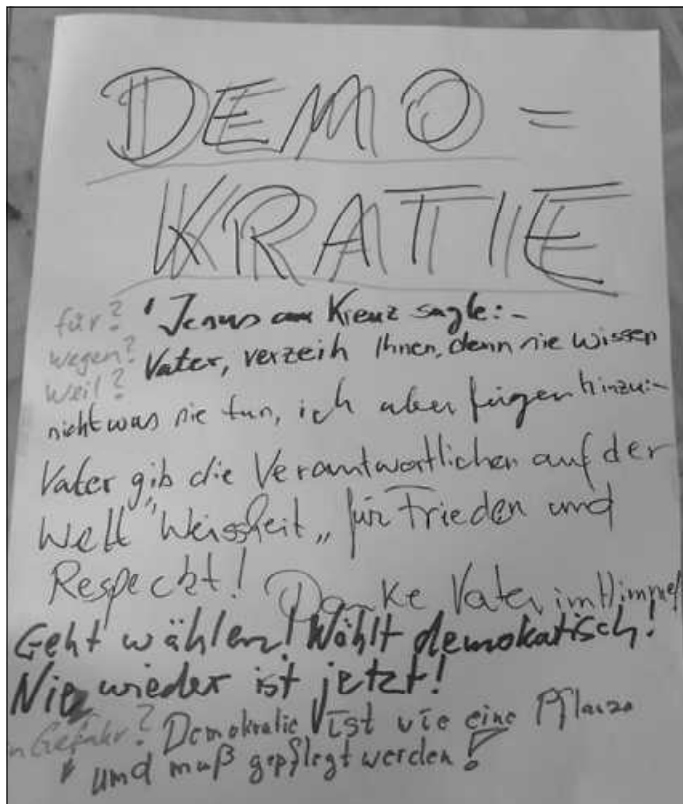 DEMO =
KRATIE
für? "Jesus am Kreuz sagte:-
wegen? Vater, verzeih Ihnen, denn sie wissen
weil?
nicht was sie tun, ich aber fügen hinzu:-
Vater gib die Verantwortlichen auf der
Welt "Weissheit„ für Frieden und
Respeckt! Danke Vater im Himmel
Geht wählen! Wählt demokatisch!
Nie wieder ist jetzt!
in Gefahr? Demokratie ist wie eine Pflanze
und muß gepflegt werden!